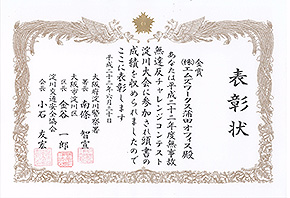 表彰状
金賞
(株)エムズワークス蒲田オフィス殿
あなたは平成二十二年度無事故
無違反チャレンジコンテスト
淀川大会に参加され頭書の
成績を収められましたので
ここに表彰します
平成二十三年六月三十日
大阪府淀川警察署
署長 南條智宣
大阪市淀川区
区長 金谷一郎
淀川交通安全協会
会長 小石友宏